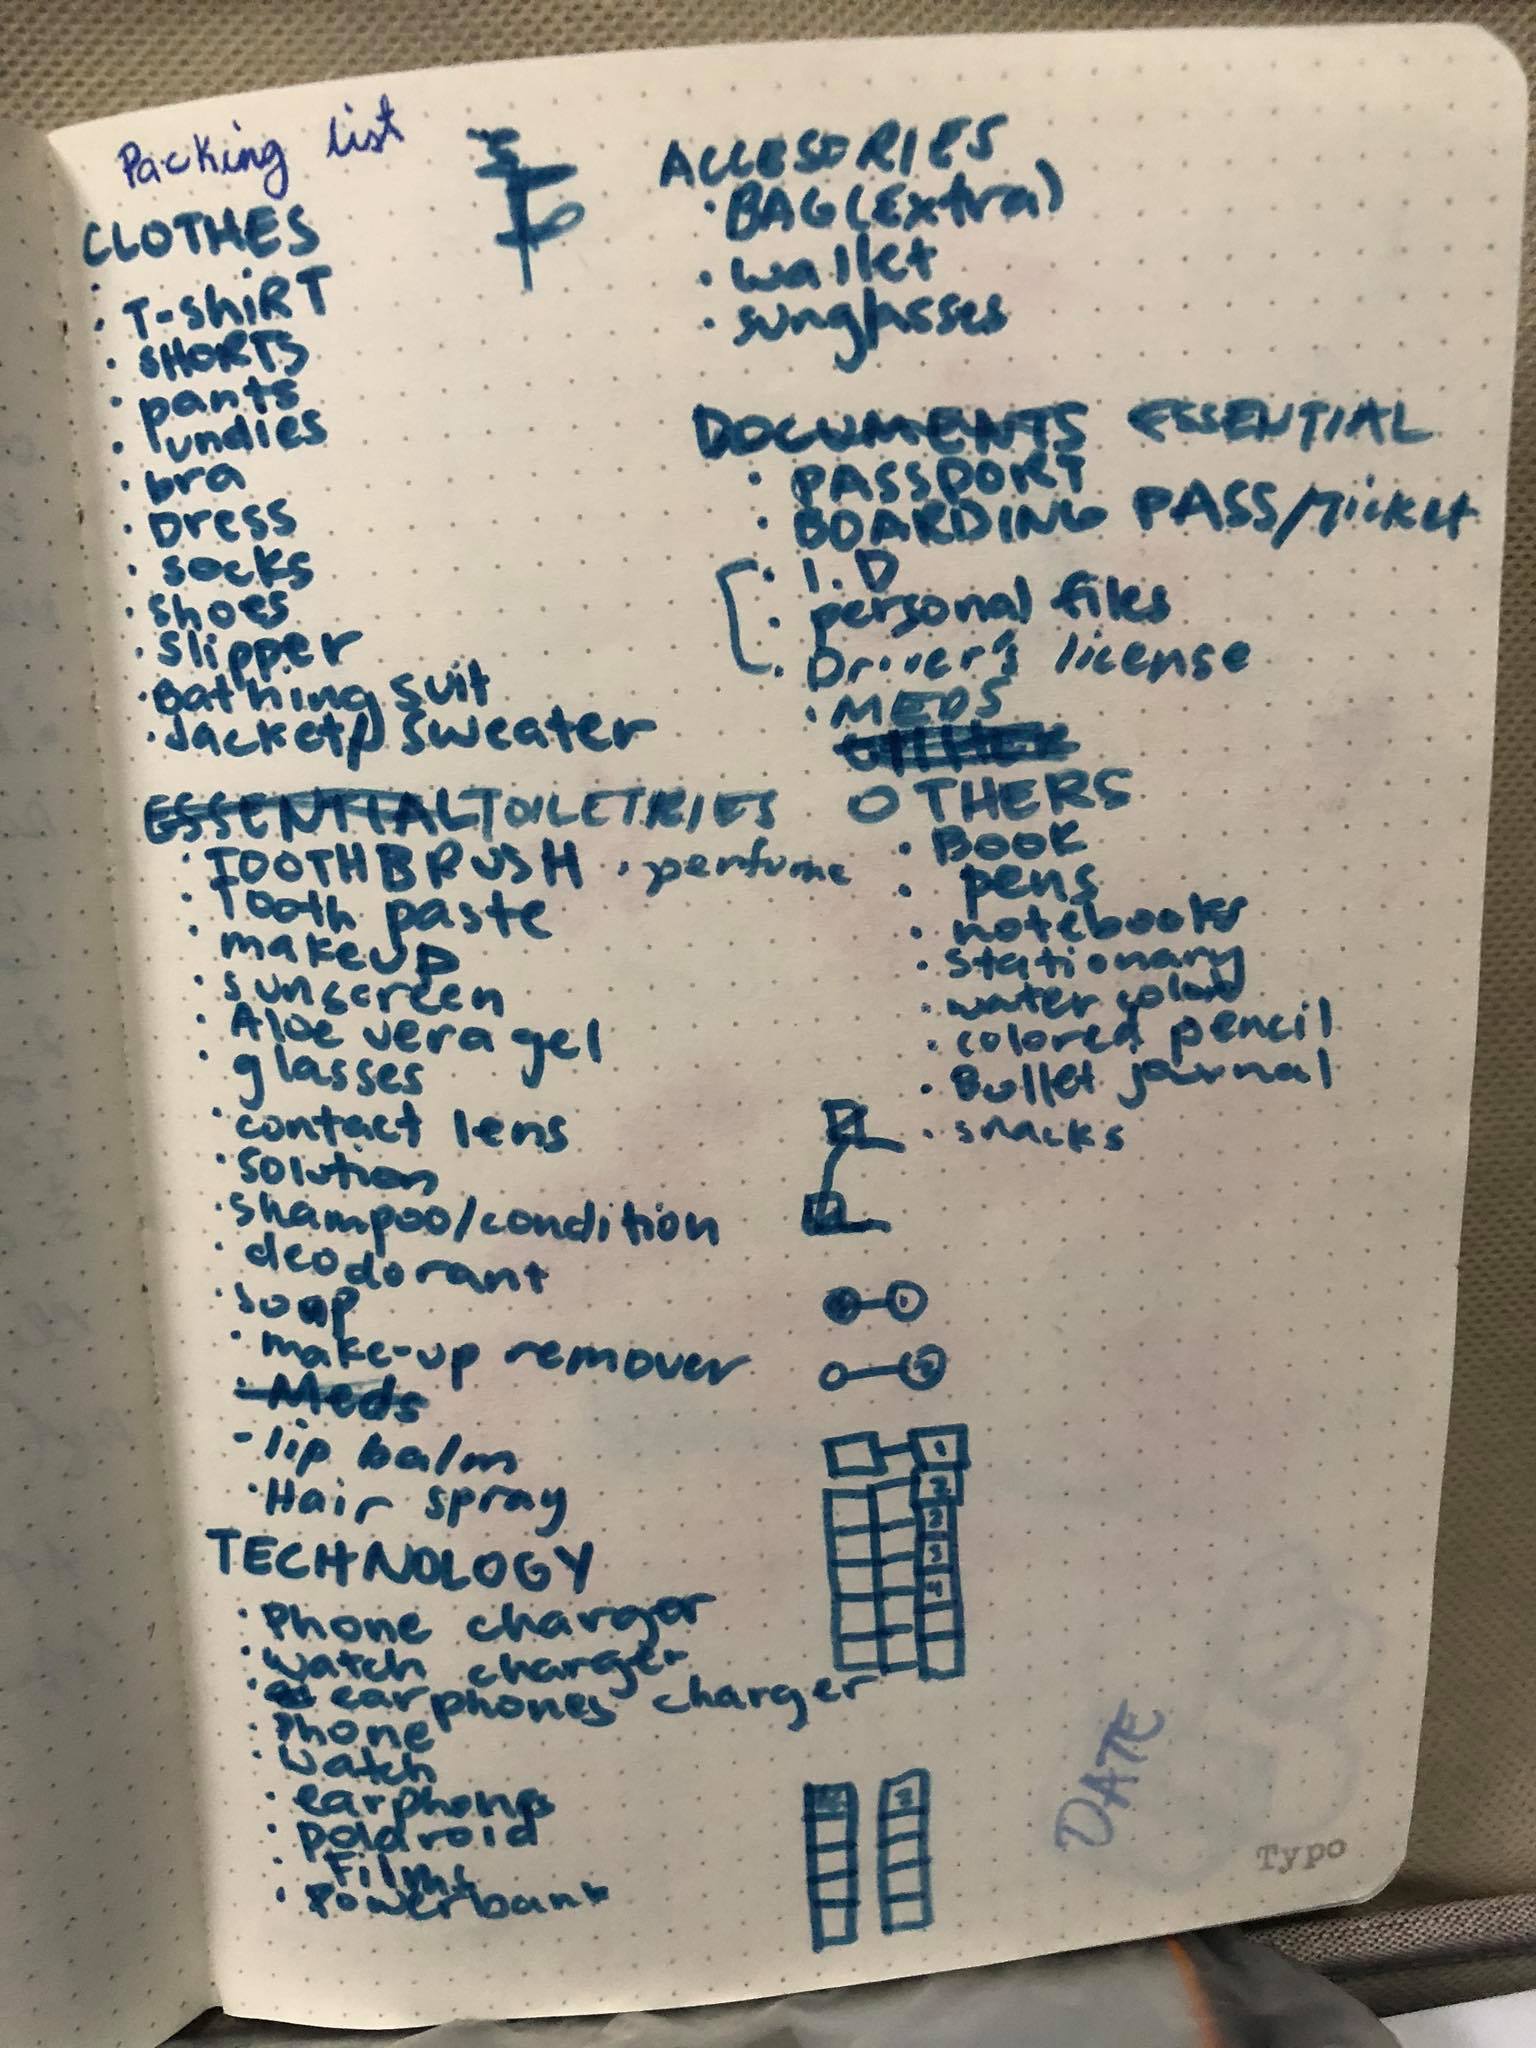 Packing list
CLOTHES
· T-shiRT
· SHORTS
· pants
· undies
· bra
· Dress
· socks
· shoes
· slipper
· Bathing suit
· Jacket/ sweater
ESSENTIAL TOILETRIES
· TOOTHBRUSH · perfume
· Tooth paste
· makeup
· sunscreen
· Aloe vera gel
· glasses
· contact lens
· solution
· shampoo/condition
· deodorant
· soap
· make-up remover
· Meds
- lip balm
· Hair spray
TECHNOLOGY
· Phone charger
· watch charger
· earphones charger
· Phone
· watch
· earphones
· polaroid
· Films
· Powerbank
ACCESORIES
· BAG (Extra)
· wallet
· sunglasses
DOCUMENTS ESSENTIAL
· PASSPORT
· BOARDING PASS/Ticket
· I.D
· personal files
· Driver's license
· MEDS
OTHERS
· Book
· pens
· notebooks
· stationary
· water color
· colored pencil
· Bullet journal
· snacks
1
2
2
3
4
2
DATE
Typo